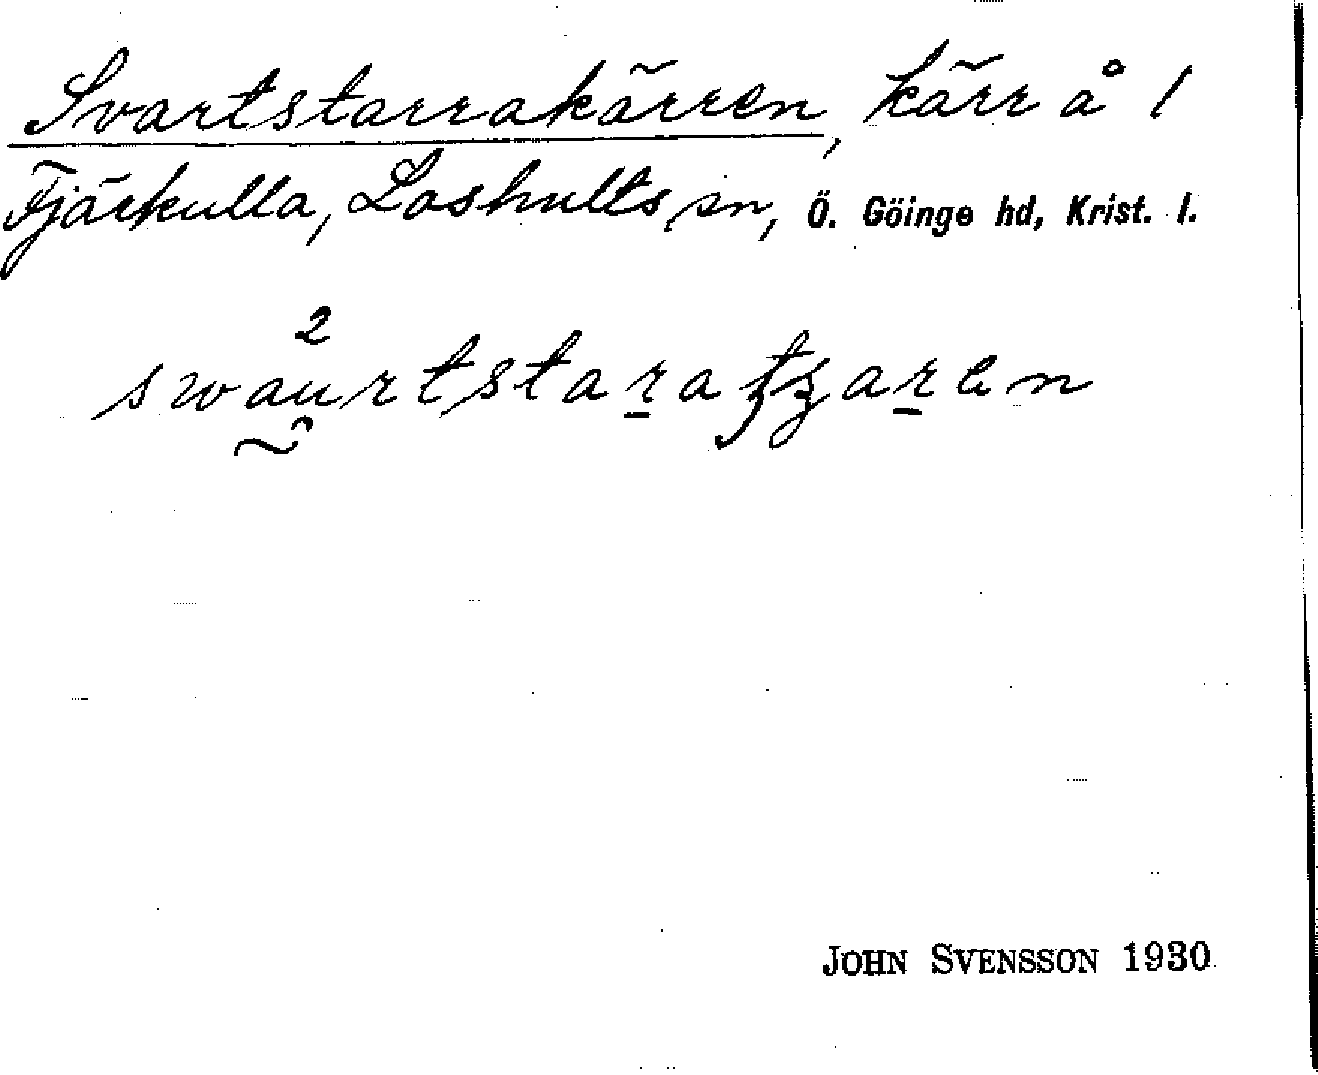 Svartstarrakärren, kärr å 1
Tjärkulla, Loshults sn, Ö. Göinge hd, Krist. l.
2
JOHN SVENSSON 1930